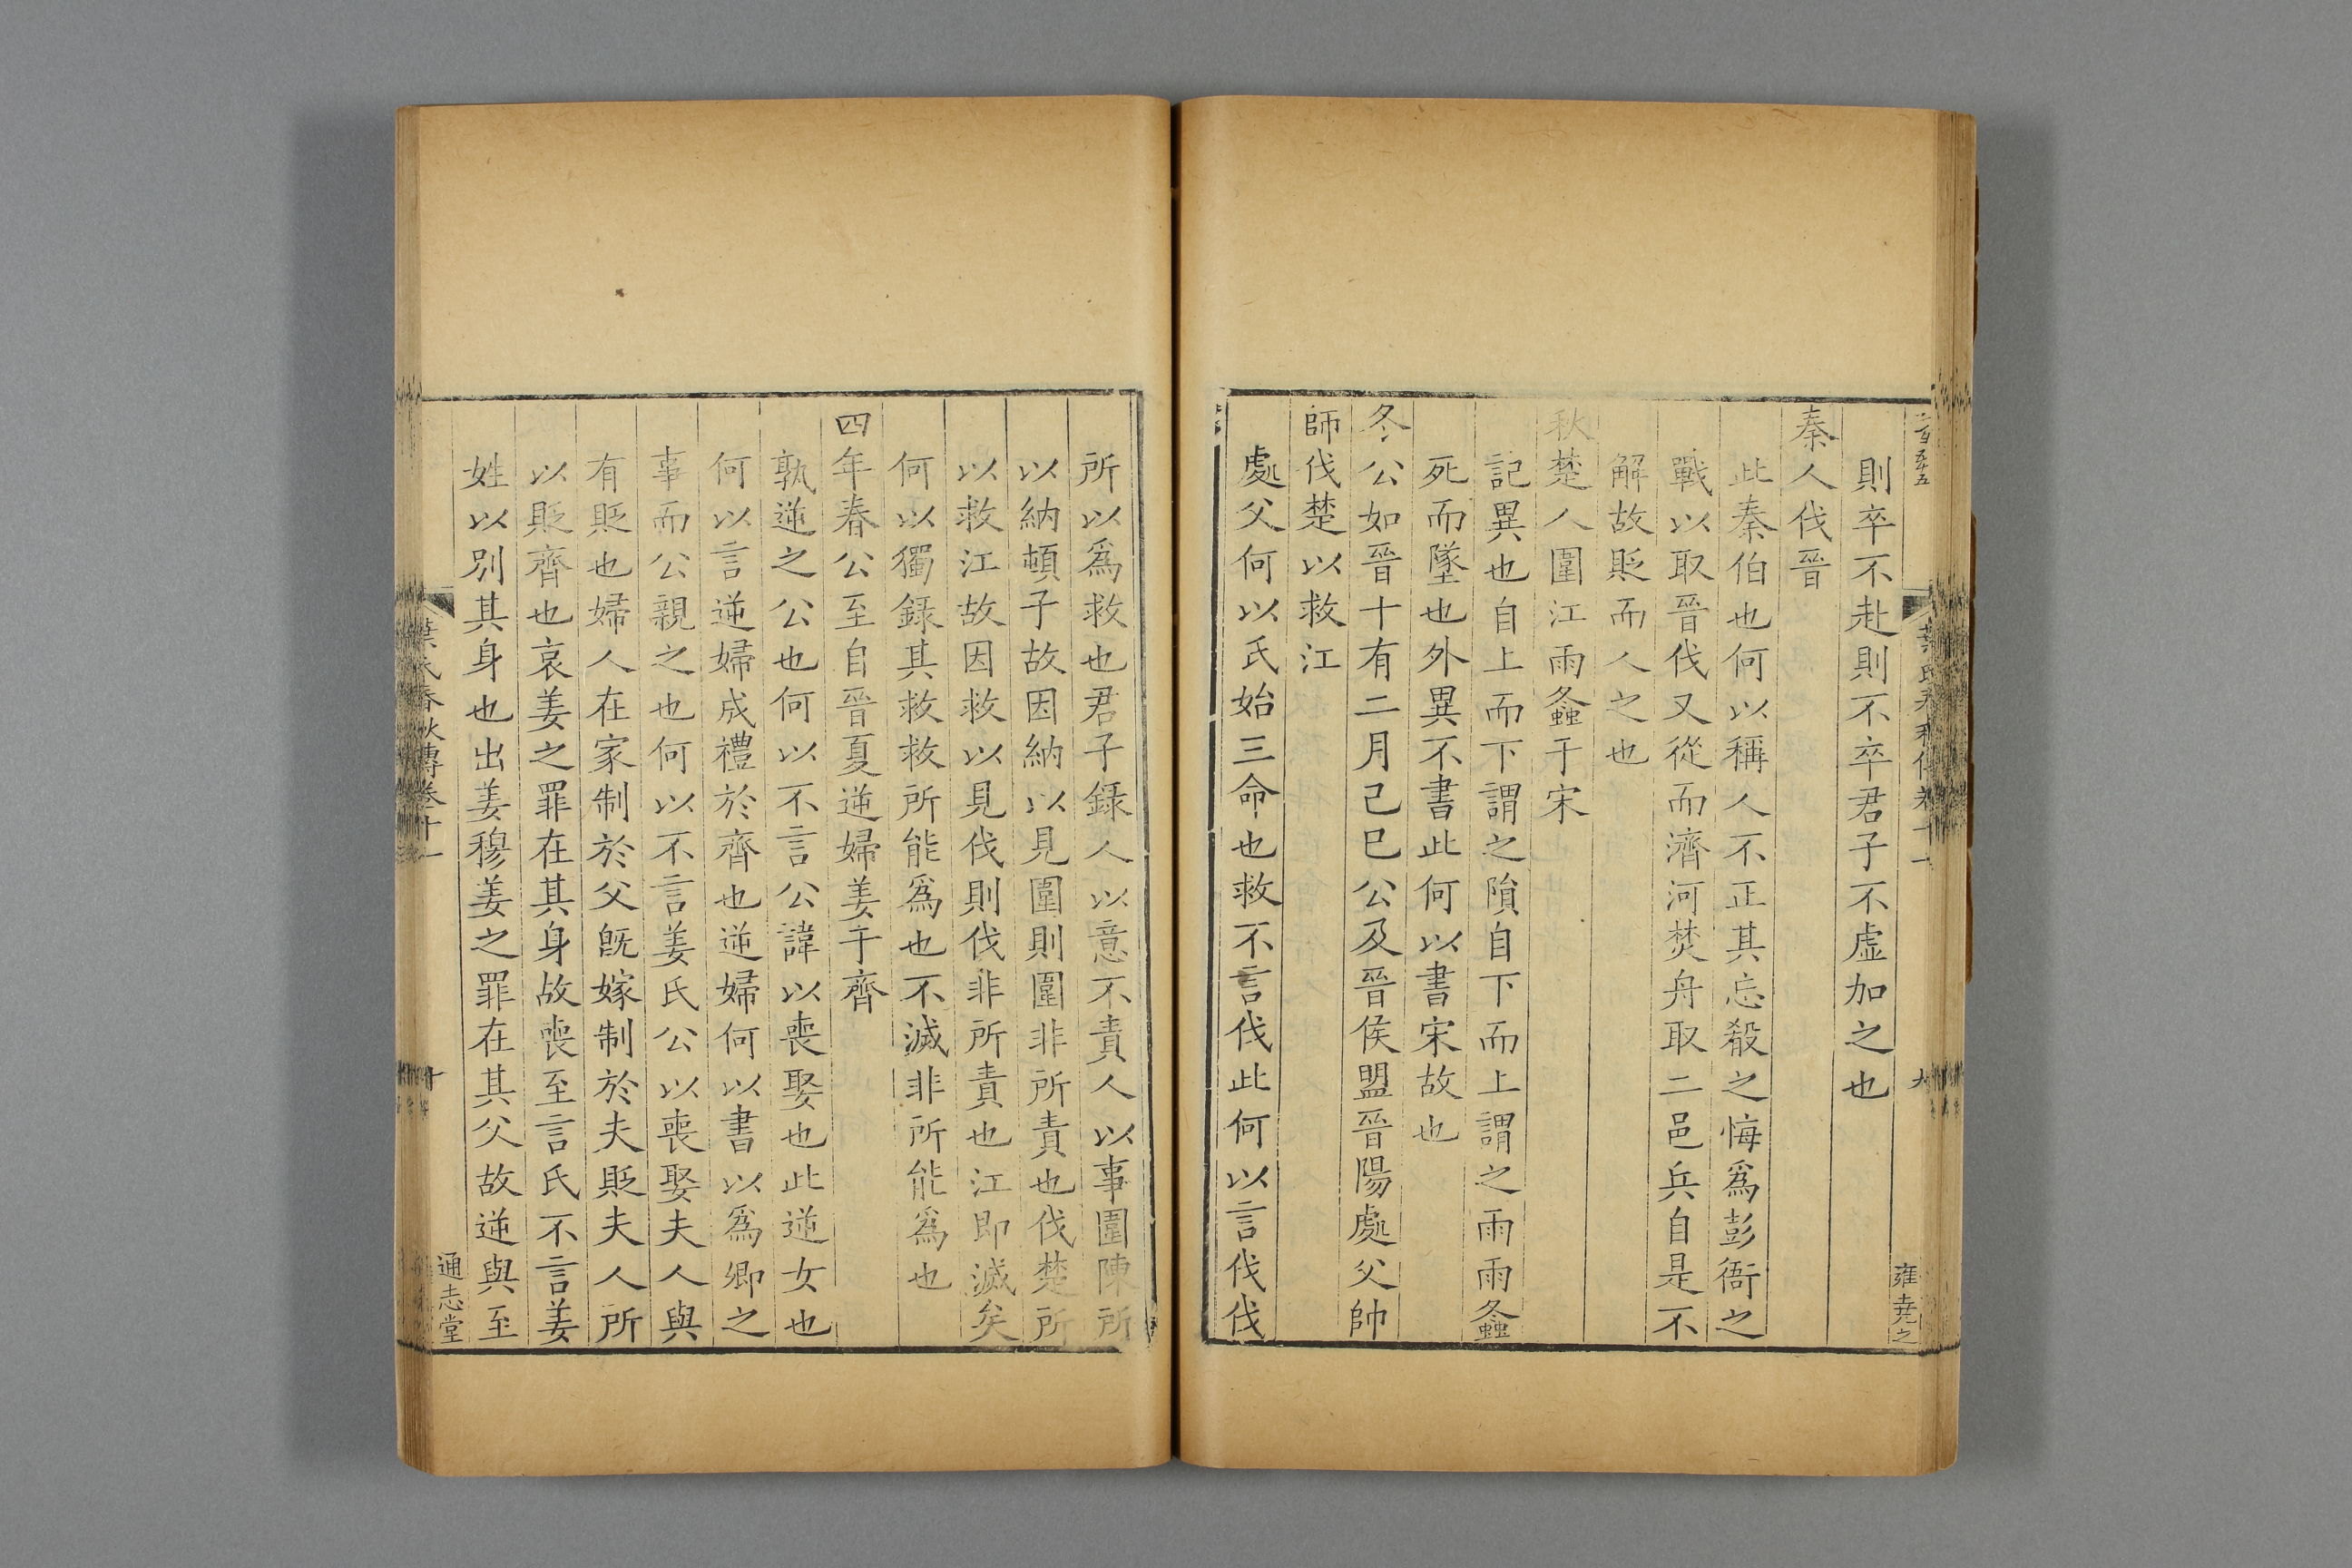 則卒不赴則不卒君子不虛加之也
秦人伐晉
此秦伯也何以稱人不正其忘殽之悔爲彭衙之
戰以取晉伐又從而濟河焚舟取二邑兵自是不
解故貶而人之也
秋楚人圍江雨螽于宋
記異也自上而下謂之隕自下而上謂之雨雨螽
死而墜也外異不書此何以書宋故也
冬公如晉十有二月己巳公及晉侯盟晉陽處父帥
師伐楚以救江
處父何以氏始三命也救不言伐此何以言伐伐
所以爲救也君子錄人以意不責人以事圍陳所
以納頓子故因納以見圍則圍非所責也伐楚所
以救江故因救以見伐則伐非所責也江即滅矣
何以獨錄其救救所能爲也不滅非所能爲也
四年春公至自晉夏逆婦姜于齊
孰逆之公也何以不言公諱以喪娶也此逆女也
何以言逆婦成禮於齊也逆婦何以書以爲卿之
事而公親之也何以不言姜氏公以喪娶夫人與
有貶也婦人在家制於父旣嫁制於夫貶夫人所
以貶齊也哀姜之罪在其身故喪至言氏不言姜
姓以別其身也出姜穆姜之罪在其父故逆與至
葉氏春秋傳卷十一
十
通志堂